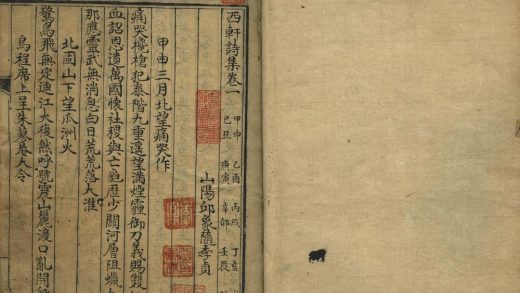 西軒詩集卷一
甲申 乙酉 丙戌 丁亥
己丑 庚寅 辛卯 壬辰
山陽邱象隨季貞
甲申三月北望痛哭作
痛哭欃槍犯泰階九重遙望滿煙霾御刀義賜雙
血詔恩遺萬國懷社稷與亡龜歷少關河層阻蠟
那應靈武無消息白日荒荒落大淮
北固山下望瓜洲火
驚鳥飛無定連江火復然呼號震山麓渡口亂開
烏程席上呈朱菴大令